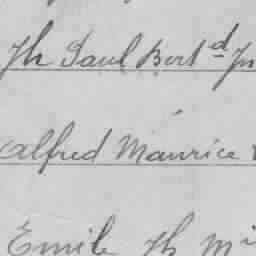 Th Saul Bertd
Alfred Maurice
Emile Th Mi